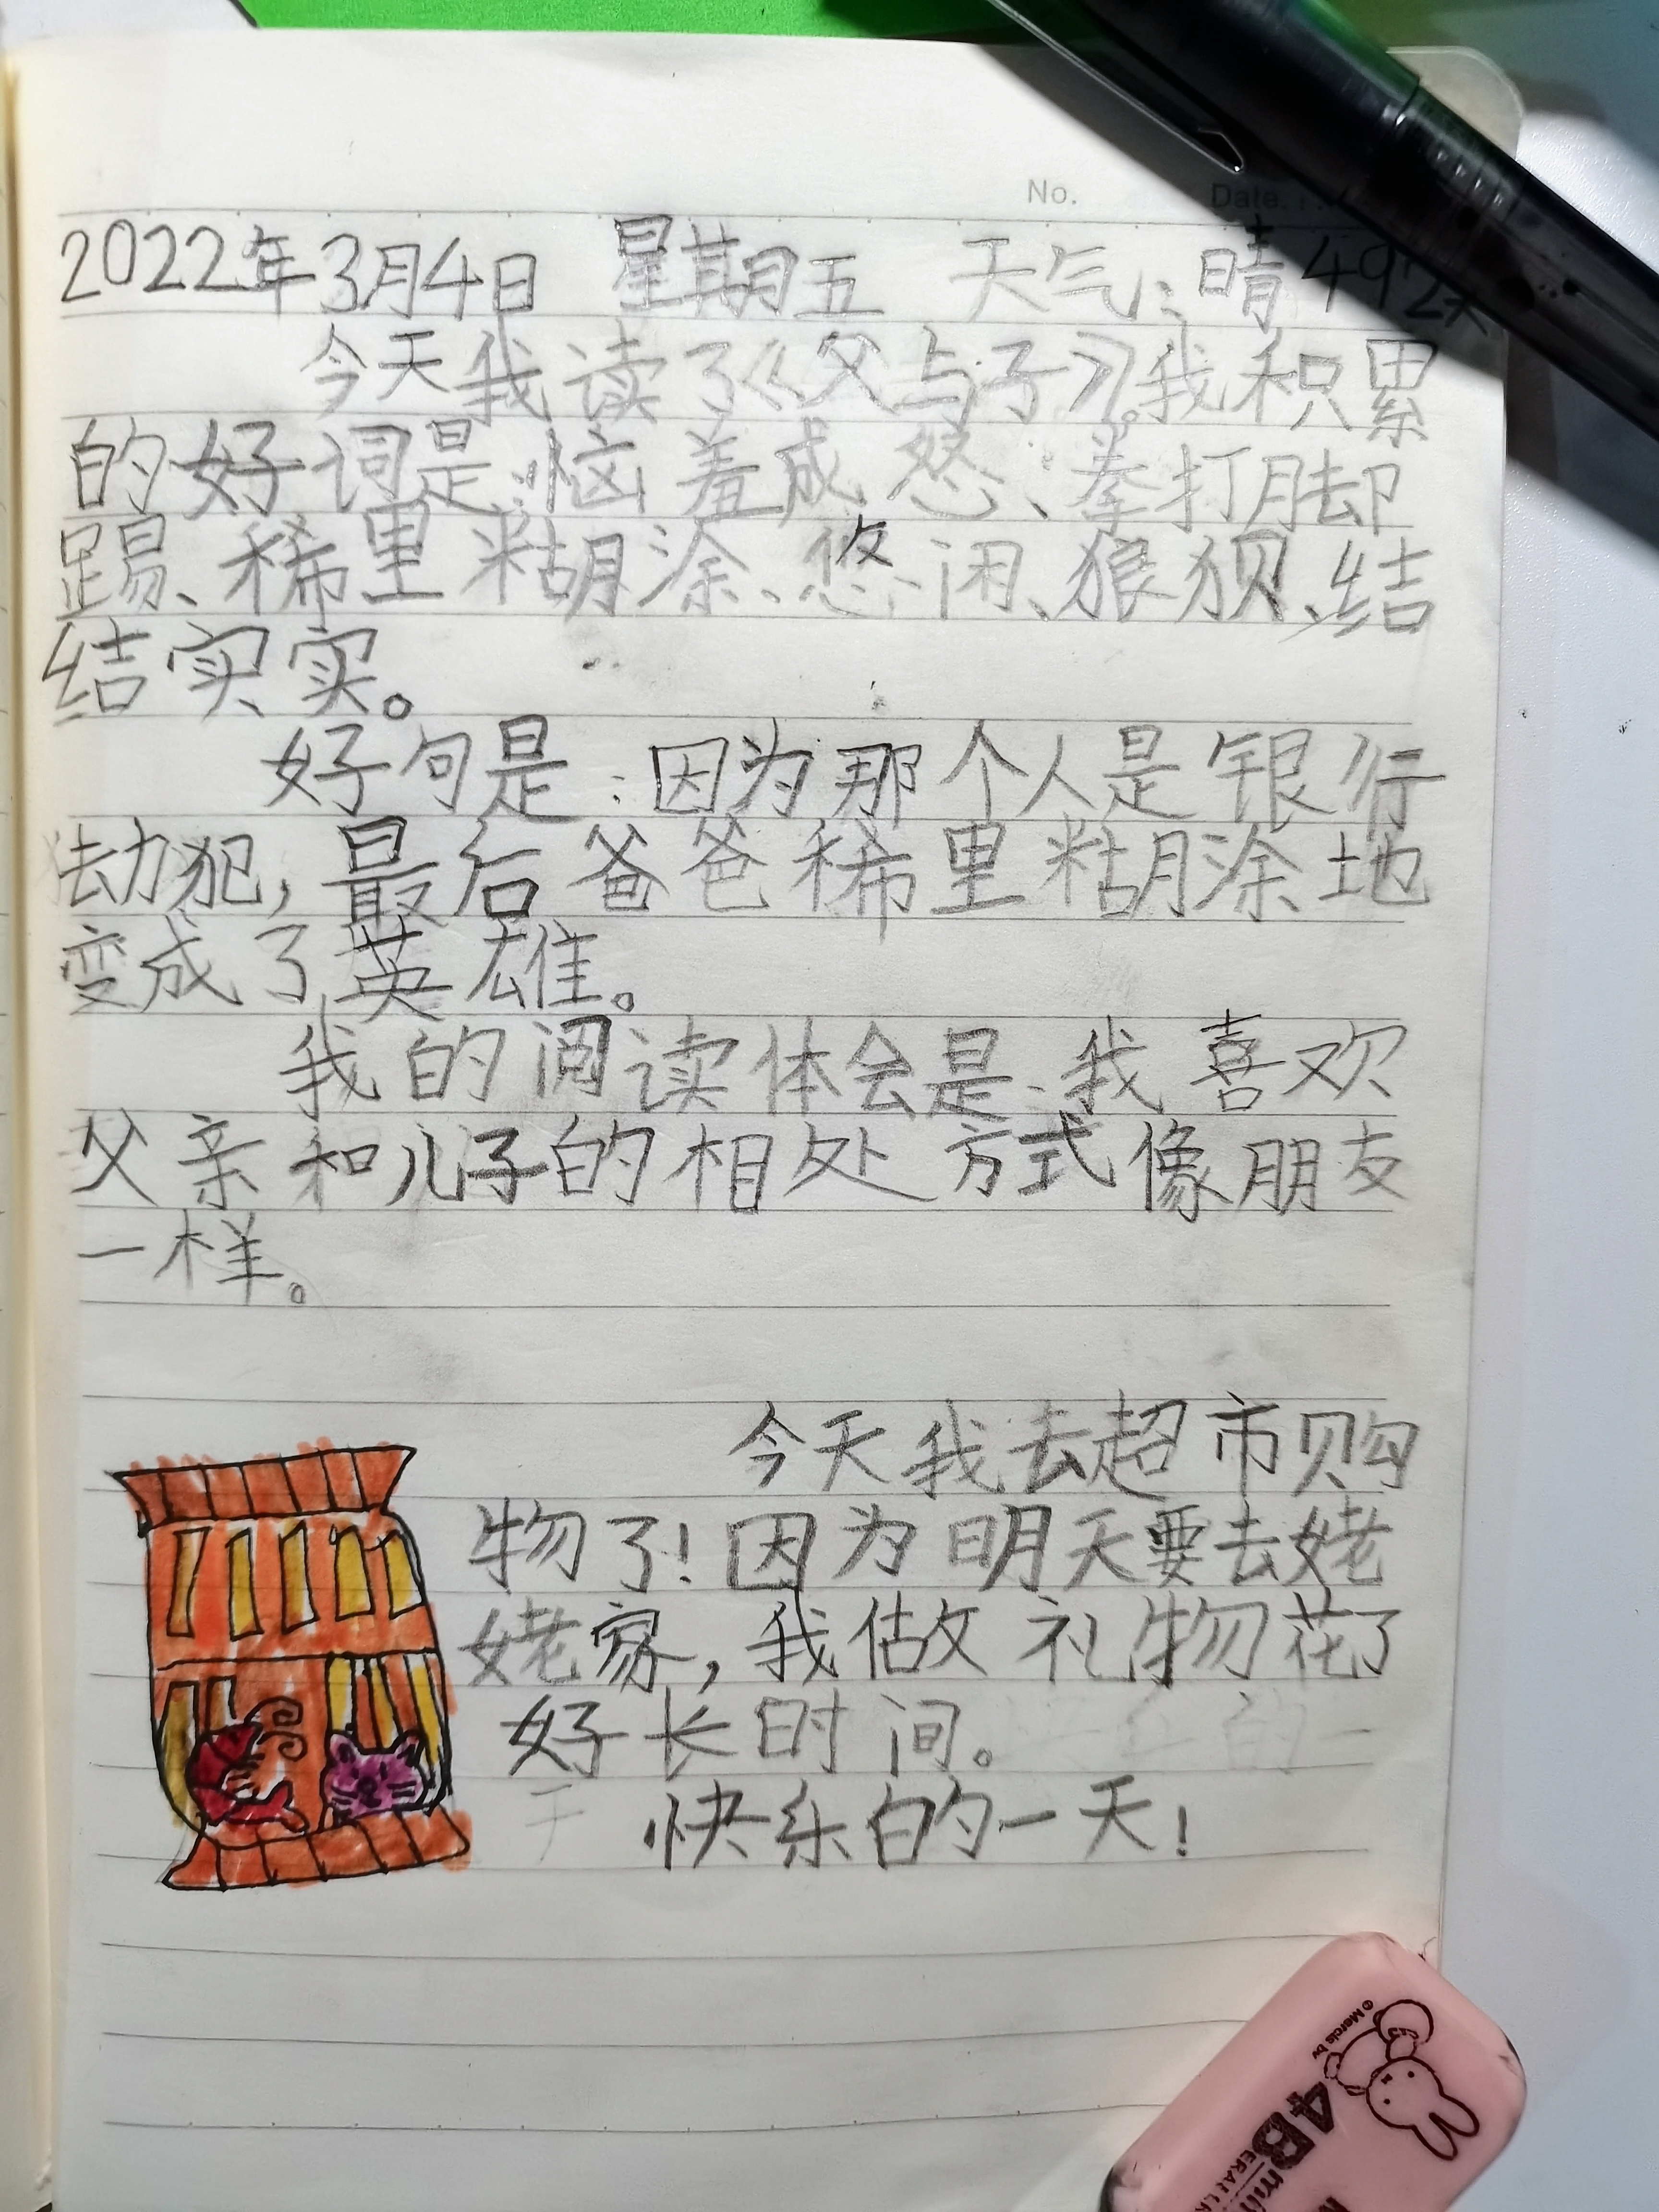 No.
Date.
2022年3月4日 星期五 天气:晴 492x
今天我读了《父与子》。我积累
的好词是:恼羞成怒、拳打脚
踢、稀里糊涂、悠闲、狼狈、结
结实实。
好句是:因为那个人是银行
劫犯,最后爸爸稀里糊涂地
变成了英雄。
我的阅读体会是:我喜欢
父亲和儿子的相处方式像朋友
一样。
今天我去超市购
物了!因为明天要去姥
姥家,我做礼物花了
好长时间。
快乐的一天!
4B